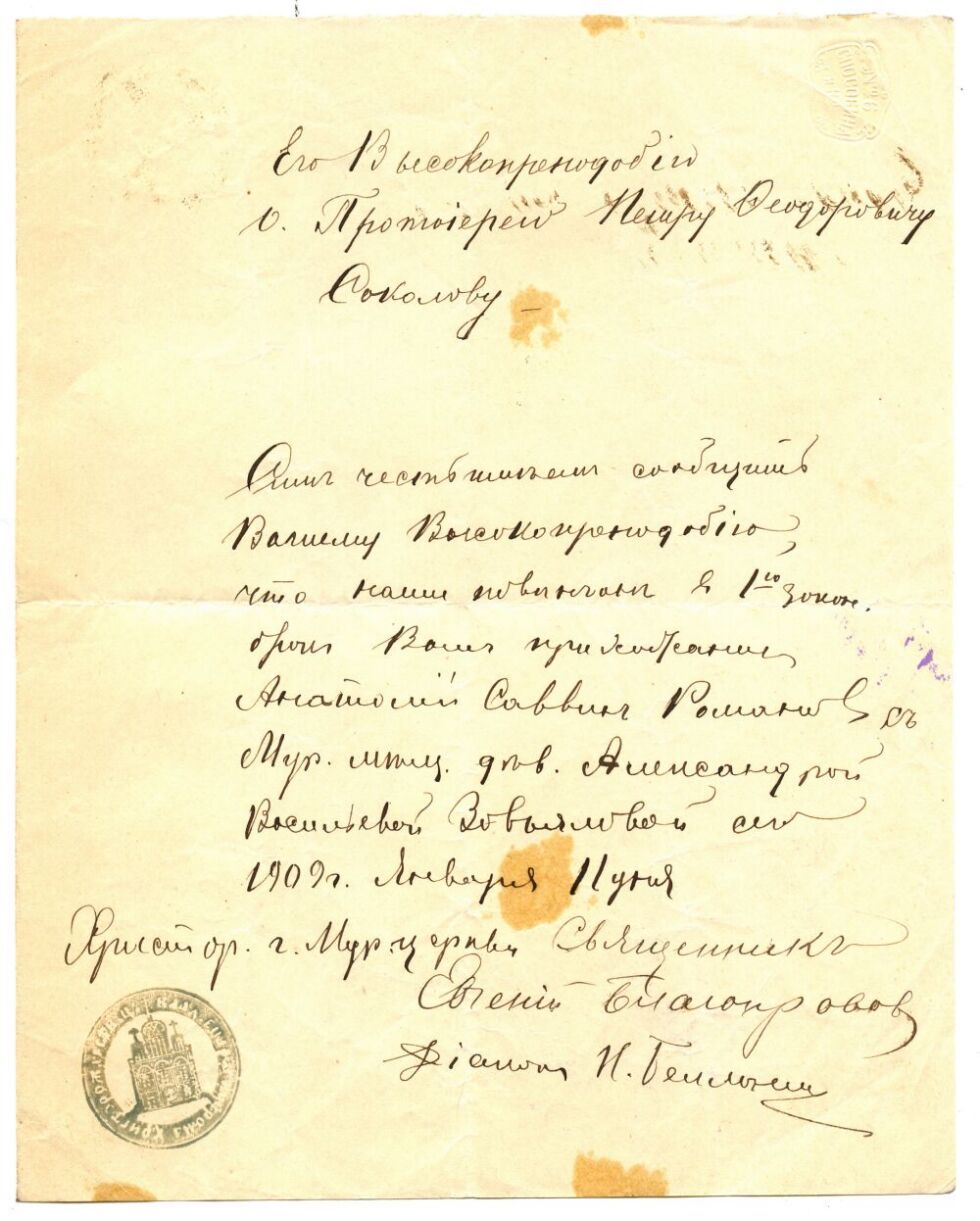 Его Высокопреподобію
о. Протоіерею Петру Ѳеодоровичу
Соколову
Симъ честь имѣемъ сообщить
Вашему Высокопреподобію,
что нами повѣнчанъ въ 1мъ закон.
бракѣ Вашъ прихожанинъ
Анатолій Саввинъ Романовъ съ
Мур. мѣщ. дѣв. Александрой
Васильевой Зовьяловой сего
1909 г. Января 11 дня
Христор. г. Мур. церкви Священникъ
Евгеній Благонравовъ
Діаконъ Н.